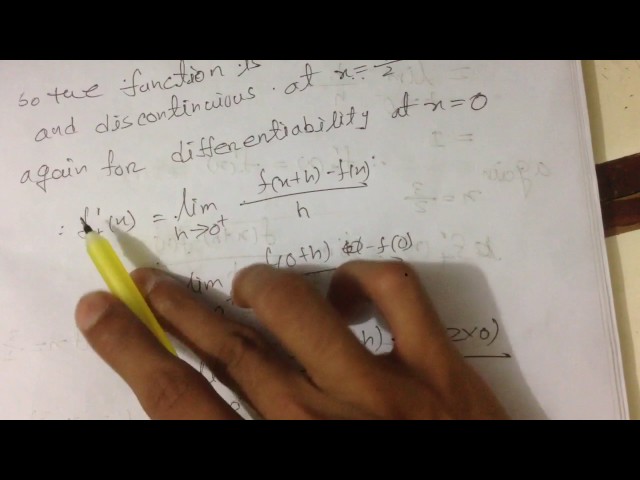 so the function is
and discontinuious. at x = /2
again for differentiability at x=0
∴ f'₊(x) = lim h→0⁺ f(x+h) - f(x) / h
lim f(0+h) - f(0)
h) 2×0)
again